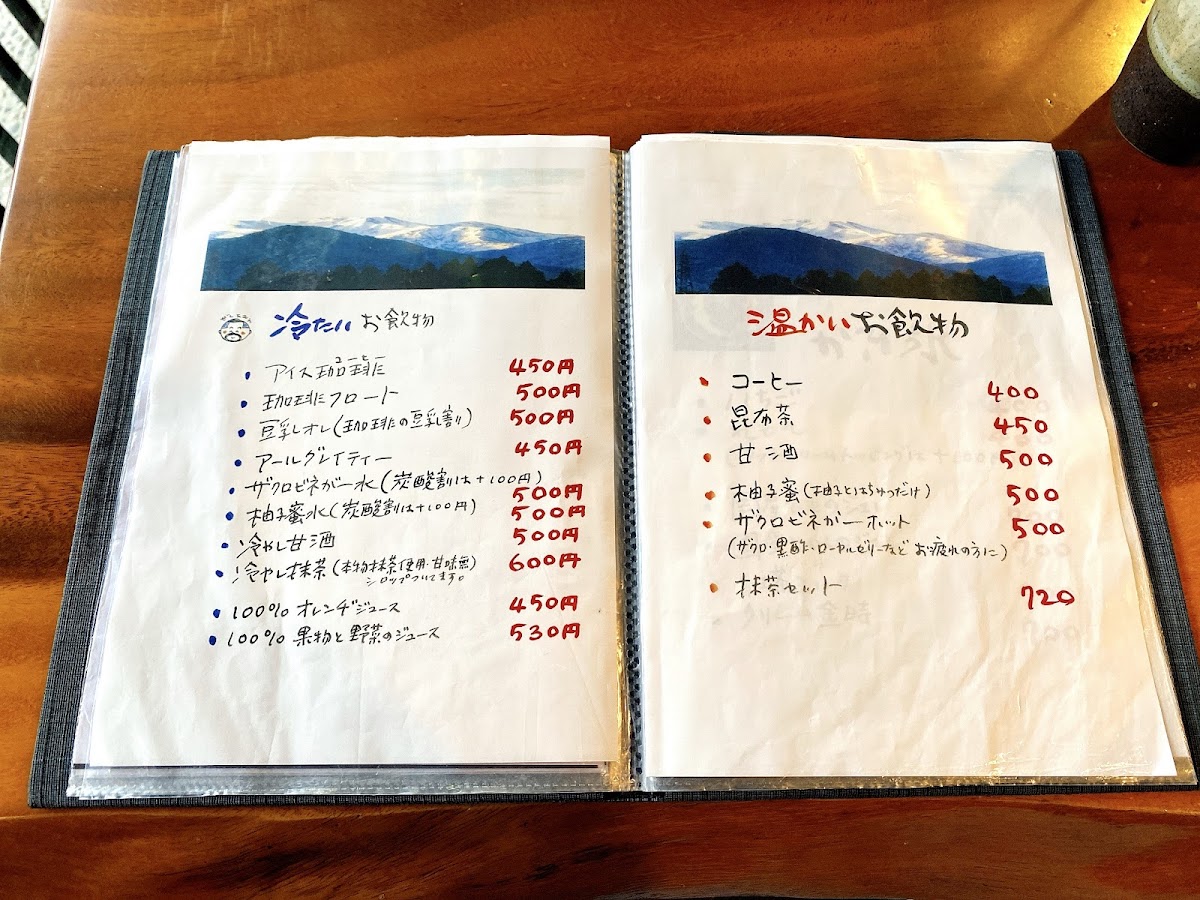 冷たいお飲物
アイス珈琲 450円
珈琲フロート 500円
豆乳オレ(珈琲の豆乳割) 500円
アールグレイティー 450円
ザクロビネガー水(炭酸割は+100円) 500円
柚子蜜水(炭酸割は+100円) 500円
冷やし甘酒 500円
冷やし抹茶(本物抹茶使用・甘味無) 600円
シロップついてます。
100%オレンヂジュース 450円
100%果物と野菜のジュース 530円
温かいお飲物
コーヒー 400
昆布茶 450
甘酒 500
柚子蜜(柚子とはちみつだけ) 500
ザクロビネガーホット 500
(ザクロ・黒酢・ローヤルゼリーなど お疲れの方に)
抹茶セット 720